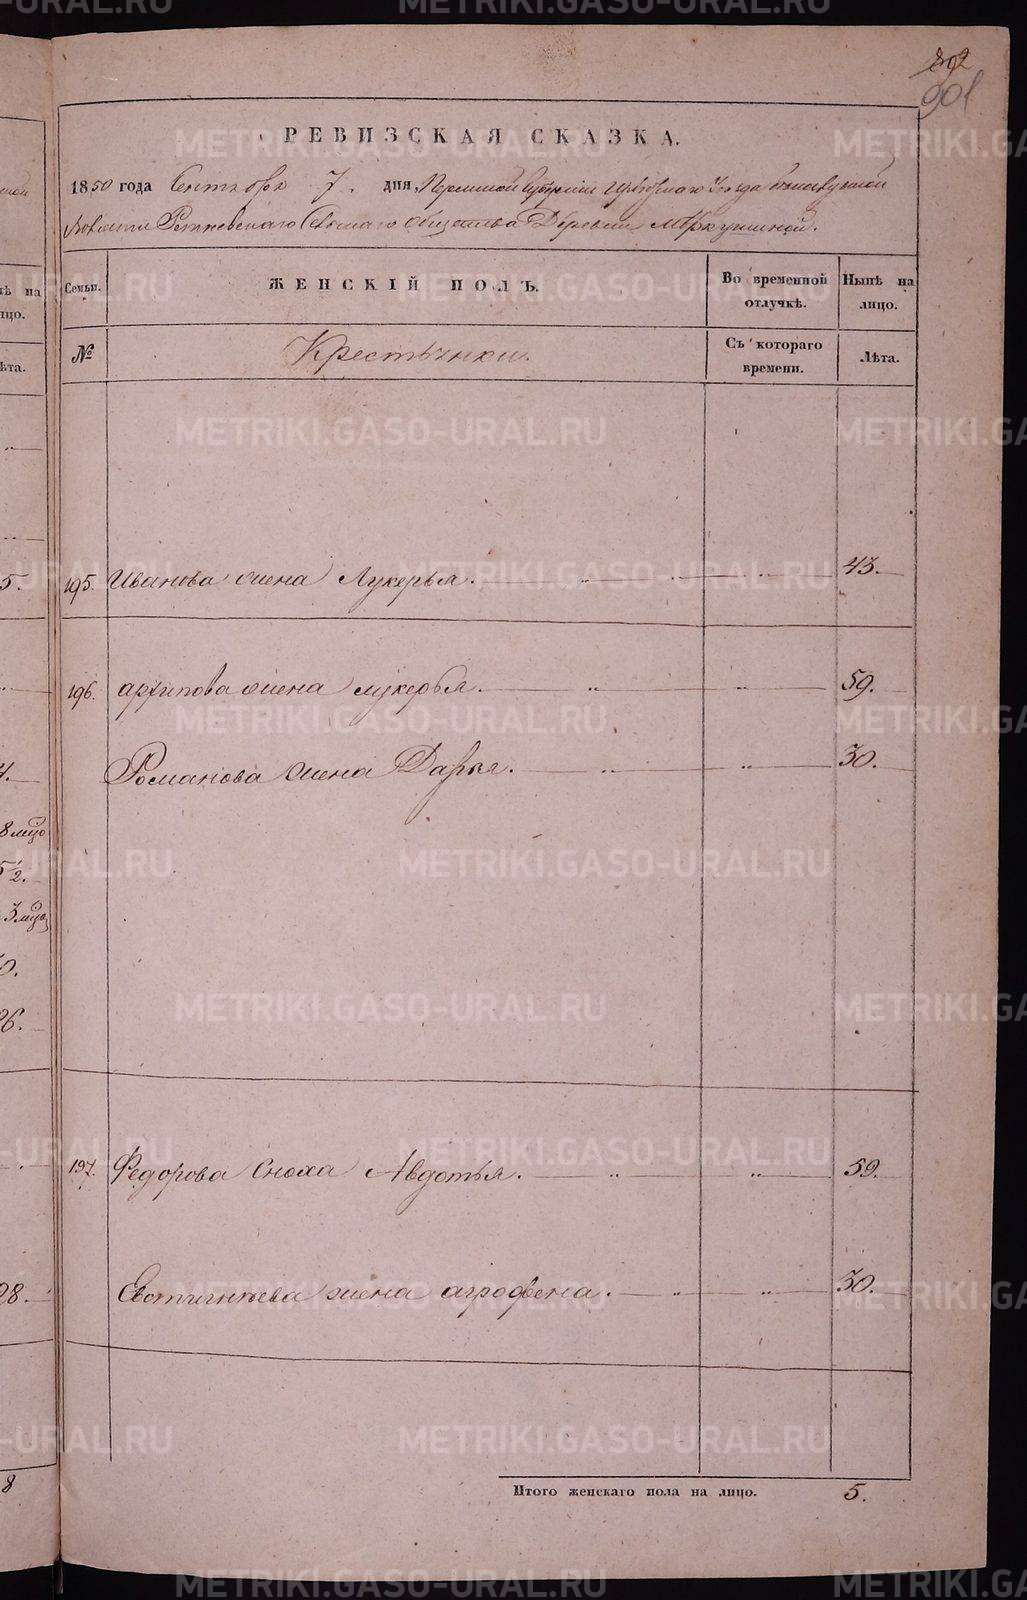 892
901
РЕВИЗСКАЯ СКАЗКА.
1850 года Сентября 7. дня, Пермской Губернии Ирбитскаго Уезда
Волости Ретневскаго Сельскаго общества Деревни Меркушиной.
Семьи. ЖЕНСКІЙ ПОЛЪ. Во временной отлучкѣ. Нынѣ на лицо.
№ Крестьянки. Съ котораго времени. Лѣта.
195. Иванова жена Лукерья. 43.
196. архипова жена лукерья. 59.
Романова жена Дарья. 30.
197. Федорова сноха Авдотья. 59.
Евстигнѣева жена агрофена. 30.
Итого женскаго пола на лицо. 5.
METRIKI.GASO-URAL.RU